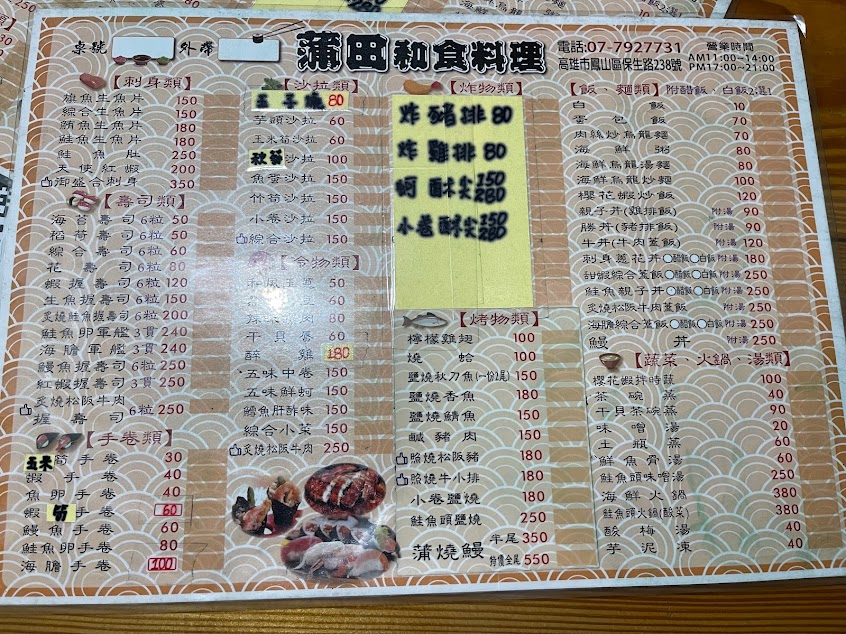 桌號 外帶 蒲田和食料理 電話:07-7927731 營業時間
高雄市鳳山區保生路238號 AM11:00~14:00
PM17:00~21:00
【刺身類】
旗魚生魚片 150
綜合生魚片 150
鮪魚生魚片 180
鮭魚生魚片 180
鮭魚肚 250
天使紅蝦 200
御盛合刺身 350
【壽司類】
海苔壽司6粒 50
稻荷壽司6粒 50
綜合壽司6粒 60
花壽司6粒 80
蝦握壽司6粒 120
生魚握壽司6粒 150
炙燒鮭魚握壽司6粒 200
鮭魚卵軍艦3貫 240
海膽軍艦3貫 240
鰻魚握壽司6粒 250
紅蝦握壽司6粒 250
炙燒松阪牛肉
握壽司6粒 250
【手卷類】
玉米筍手卷 30
蝦手卷 40
魚卵手卷 40
蝦筍手卷 60
鰻魚手卷 60
鮭魚卵手卷 80
海膽手卷 100
【沙拉類】
80
芋頭沙拉 60
玉米筍沙拉 60
秋葵沙拉 100
魚香沙拉 150
竹筍沙拉 150
小卷沙拉 150
綜合沙拉 150
【冷物類】
50
60
80
干貝唇 60
醉雞 180
五味中卷 150
五味鮮蚵 150
鱈魚肝酢味 150
綜合小菜 150
炙燒松阪牛肉 250
【炸物類】
炸豬排 80
炸雞排 80
蚵酥尖 150
280
小卷酥尖 150
280
【烤物類】
檸檬雞翅 100
燒蛤 100
鹽燒秋刀魚(一份2尾) 150
鹽燒香魚 180
鹽燒鯖魚 150
鹹豬肉 150
照燒松阪豬 180
照燒牛小排 180
小卷鹽燒 250
鮭魚頭鹽燒 250
蒲燒鰻 半尾 350
特價全尾 550
【飯、麵類】附醋飯、白飯2選1
白飯 10
蛋包飯 70
肉絲炒烏龍麵 70
海鮮粥 80
海鮮烏龍湯麵 80
海鮮烏龍炒麵 100
櫻花蝦炒飯 120
親子丼(雞排飯) 附湯 120
勝丼(豬排飯) 附湯 120
牛丼(牛肉蓋飯) 附湯 120
刺身蔥花丼 ○醋飯○白飯 附湯 180
甜蝦綜合蓋飯 ○醋飯○白飯 附湯 250
鮭魚親子丼 ○醋飯○白飯 附湯 250
炙燒松阪牛肉蓋飯 附湯 250
海膽綜合蓋飯 ○醋飯○白飯 附湯 250
鰻丼 附湯 250
【蔬菜、火鍋、湯類】
櫻花蝦拌時蔬 100
茶碗蒸 40
干貝茶碗蒸 90
味噌湯 20
土瓶蒸 60
鮮魚骨湯 60
鮭魚頭味噌湯 250
海鮮火鍋 380
鮭魚頭火鍋(酸菜) 380
酸梅湯 40
芋泥凍 40